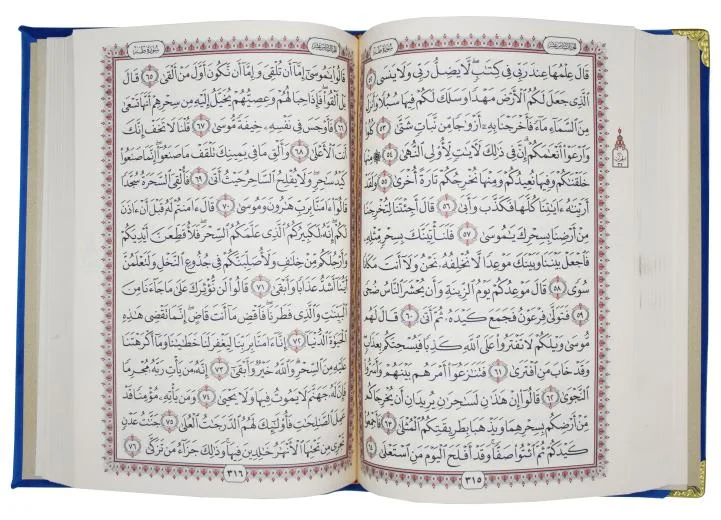 الجزء السادس عشر
سورة طه
قَالَ عِلْمُهَا عِندَ رَبِّي فِي كِتَٰبٍ لَّا يَضِلُّ رَبِّي وَلَا يَنسَى ٥٢
ٱلَّذِي جَعَلَ لَكُمُ ٱلْأَرْضَ مَهْدًا وَسَلَكَ لَكُمْ فِيهَا سُبُلًا وَأَنزَلَ
مِنَ ٱلسَّمَآءِ مَآءً فَأَخْرَجْنَا بِهِۦٓ أَزْوَٰجًا مِّن نَّبَاتٍ شَتَّىٰ ٥٣ كُلُوا۟
وَٱرْعَوْا۟ أَنْعَٰمَكُمْ إِنَّ فِي ذَٰلِكَ لَءَايَٰتٍ لِّأُو۟لِي ٱلنُّهَىٰ ٥٤ ۞ مِنْهَا
خَلَقْنَٰكُمْ وَفِيهَا نُعِيدُكُمْ وَمِنْهَا نُخْرِجُكُمْ تَارَةً أُخْرَىٰ ٥٥ وَلَقَدْ
أَرَيْنَٰهُ ءَايَٰتِنَا كُلَّهَا فَكَذَّبَ وَأَبَىٰ ٥٦ قَالَ أَجِئْتَنَا لِتُخْرِجَنَا
مِنْ أَرْضِنَا بِسِحْرِكَ يَٰمُوسَىٰ ٥٧ فَلَنَأْتِيَنَّكَ بِسِحْرٍ مِّثْلِهِۦ
فَٱجْعَلْ بَيْنَنَا وَبَيْنَكَ مَوْعِدًا لَّا نُخْلِفُهُۥ نَحْنُ وَلَآ أَنتَ مَكَانًا
سُوًى ٥٨ قَالَ مَوْعِدُكُمْ يَوْمُ ٱلزِّينَةِ وَأَن يُحْشَرَ ٱلنَّاسُ ضُحًى
٥٩ فَتَوَلَّىٰ فِرْعَوْنُ فَجَمَعَ كَيْدَهُۥ ثُمَّ أَتَىٰ ٦٠ قَالَ لَهُم
مُّوسَىٰ وَيْلَكُمْ لَا تَفْتَرُوا۟ عَلَى ٱللَّهِ كَذِبًا فَيُسْحِتَكُم بِعَذَابٍ
وَقَدْ خَابَ مَنِ ٱفْتَرَىٰ ٦١ فَتَنَٰزَعُوٓا۟ أَمْرَهُم بَيْنَهُمْ وَأَسَرُّوا۟
ٱلنَّجْوَىٰ ٦٢ قَالُوٓا۟ إِنْ هَٰذَٰنِ لَسَٰحِرَٰنِ يُرِيدَانِ أَن يُخْرِجَاكُم
مِّنْ أَرْضِكُم بِسِحْرِهِمَا وَيَذْهَبَا بِطَرِيقَتِكُمُ ٱلْمُثْلَىٰ ٦٣ فَأَجْمِعُوا۟
كَيْدَكُمْ ثُمَّ ٱئْتُوا۟ صَفًّا وَقَدْ أَفْلَحَ ٱلْيَوْمَ مَنِ ٱسْتَعْلَىٰ ٦٤
٣١٥
الجزء السادس عشر
سورة طه
قَالُوا۟ يَٰمُوسَىٰٓ إِمَّآ أَن تُلْقِيَ وَإِمَّآ أَن نَّكُونَ أَوَّلَ مَنْ أَلْقَىٰ ٦٥ قَالَ
بَلْ أَلْقُوا۟ فَإِذَا حِبَالُهُمْ وَعِصِيُّهُمْ يُخَيَّلُ إِلَيْهِ مِن سِحْرِهِمْ أَنَّهَا تَسْعَىٰ
٦٦ فَأَوْجَسَ فِي نَفْسِهِۦ خِيفَةً مُّوسَىٰ ٦٧ قُلْنَا لَا تَخَفْ إِنَّكَ
أَنتَ ٱلْأَعْلَىٰ ٦٨ وَأَلْقِ مَا فِي يَمِينِكَ تَلْقَفْ مَا صَنَعُوٓا۟ إِنَّمَا صَنَعُوا۟
كَيْدُ سَٰحِرٍ وَلَا يُفْلِحُ ٱلسَّاحِرُ حَيْثُ أَتَىٰ ٦٩ فَأُلْقِيَ ٱلسَّحَرَةُ سُجَّدًا
قَالُوٓا۟ ءَامَنَّا بِرَبِّ هَٰرُونَ وَمُوسَىٰ ٧٠ قَالَ ءَامَنتُمْ لَهُۥ قَبْلَ أَنْ ءَاذَنَ
لَكُمْ إِنَّهُۥ لَكَبِيرُكُمُ ٱلَّذِي عَلَّمَكُمُ ٱلسِّحْرَ فَلَأُقَطِّعَنَّ أَيْدِيَكُمْ
وَأَرْجُلَكُم مِّنْ خِلَٰفٍ وَلَأُصَلِّبَنَّكُمْ فِي جُذُوعِ ٱلنَّخْلِ وَلَتَعْلَمُنَّ
أَيُّنَآ أَشَدُّ عَذَابًا وَأَبْقَىٰ ٧١ قَالُوا۟ لَن نُّؤْثِرَكَ عَلَىٰ مَا جَآءَنَا مِنَ
ٱلْبَيِّنَٰتِ وَٱلَّذِي فَطَرَنَا فَٱقْضِ مَآ أَنتَ قَاضٍ إِنَّمَا تَقْضِي هَٰذِهِ
ٱلْحَيَوٰةَ ٱلدُّنْيَآ ٧٢ إِنَّآ ءَامَنَّا بِرَبِّنَا لِيَغْفِرَ لَنَا خَطَٰيَٰنَا وَمَآ أَكْرَهْتَنَا
عَلَيْهِ مِنَ ٱلسِّحْرِ وَٱللَّهُ خَيْرٌ وَأَبْقَىٰٓ ٧٣ إِنَّهُۥ مَن يَأْتِ رَبَّهُۥ مُجْرِمًا
فَإِنَّ لَهُۥ جَهَنَّمَ لَا يَمُوتُ فِيهَا وَلَا يَحْيَىٰ ٧٤ وَمَن يَأْتِهِۦ مُؤْمِنًا قَدْ
عَمِلَ ٱلصَّٰلِحَٰتِ فَأُو۟لَٰٓئِكَ لَهُمُ ٱلدَّرَجَٰتُ ٱلْعُلَىٰ ٧٥ جَنَّٰتُ عَدْنٍ
تَجْرِي مِن تَحْتِهَا ٱلْأَنْهَٰرُ خَٰلِدِينَ فِيهَا وَذَٰلِكَ جَزَآءُ مَن تَزَكَّىٰ ٧٦
٣١٦